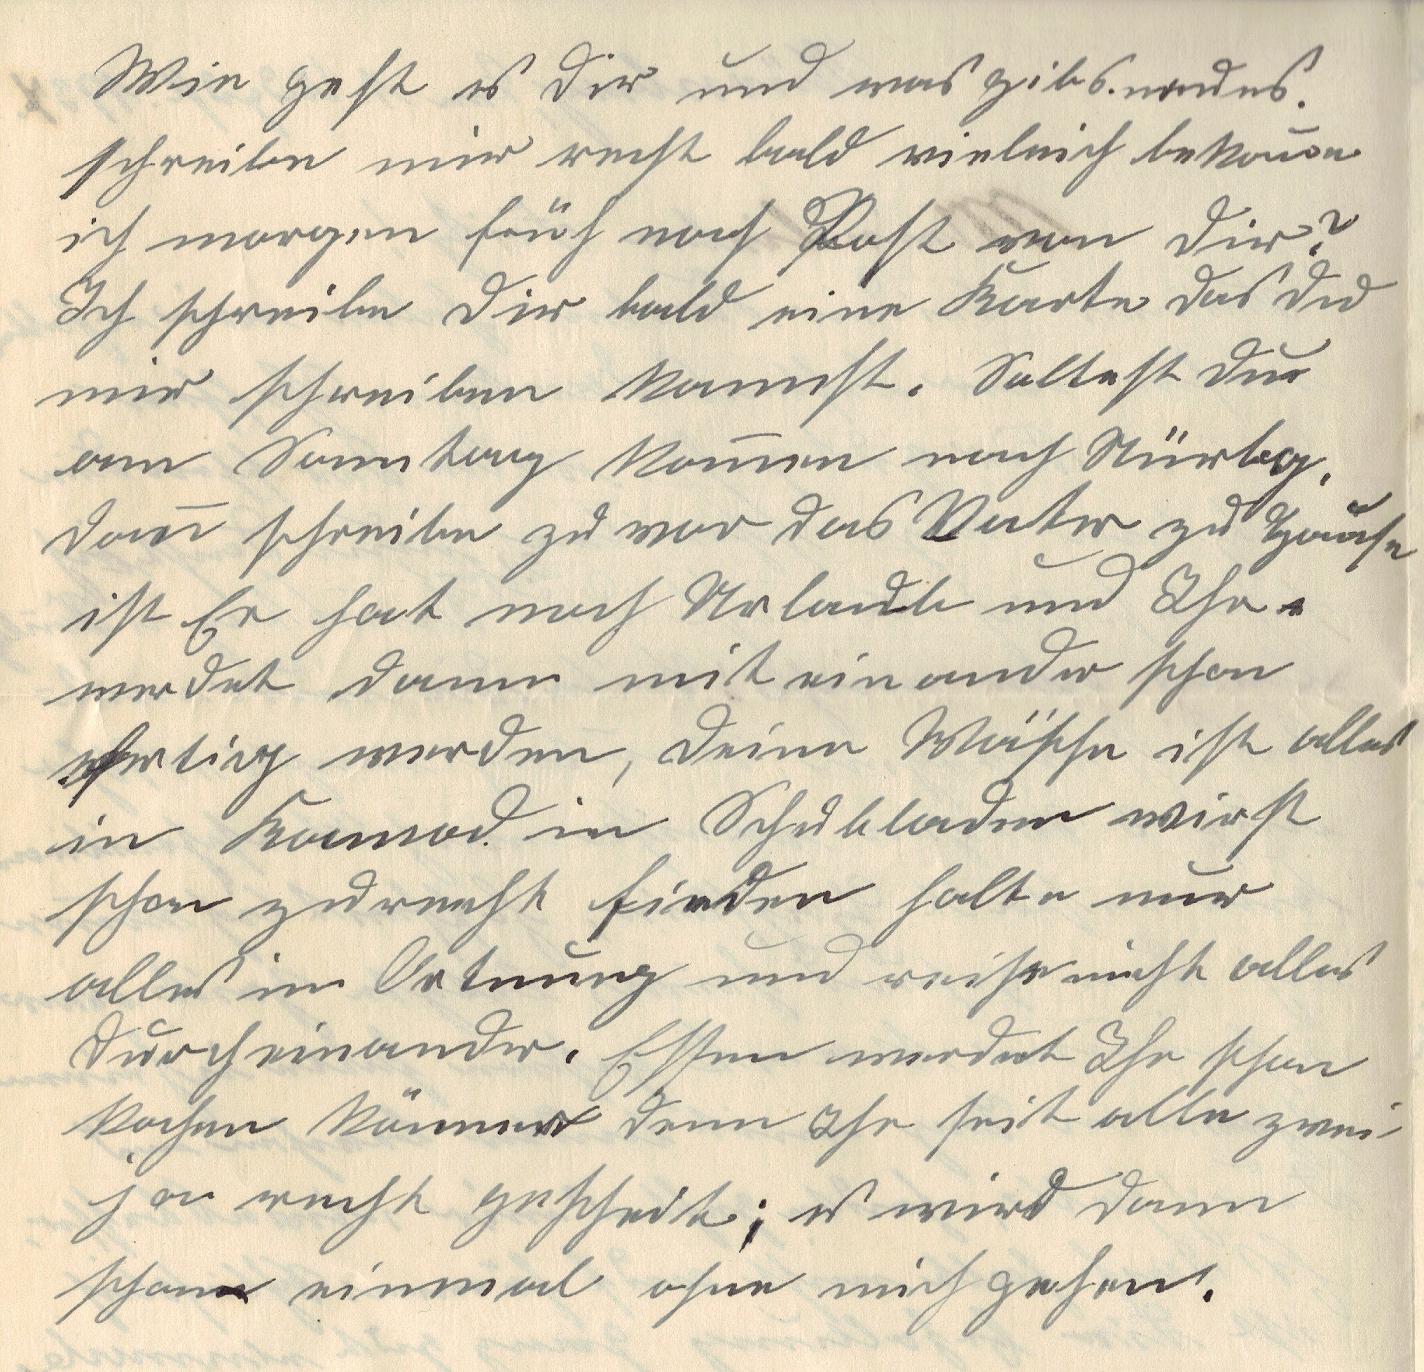 Wie geht es Dir und was gibs. neues.
schreibe mir recht bald vieleich bekom̄e
ich morgen früh noch Post von Dir?
Ich schreibe Dir bald eine Karte das Du
mir schreiben kannst. Soltest Du
am Sonntag kom̄en nach Nürbg.
dan̄ schreibe zu vor das Vater zu Hause
ist Er hat noch Urlaub und Ihr
werdet dann mit einander schon
fertig werden, Deine Wäsche ist alles
in Kamod. in Schubladen wirst
schon zurecht finden halte nur
alles in Ortnung und reise nicht alles
Durcheinander. Essen werdet Ihr schon
kochen können denn Ihr seit alle zwei
ja recht gescheit; es wird dann
schon einmal ohne mich gehen.